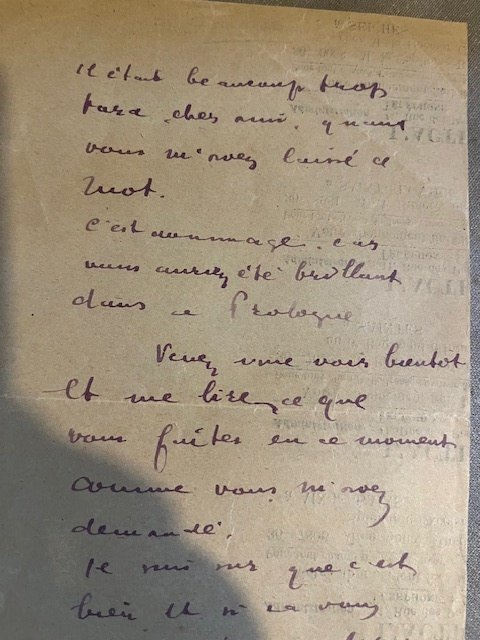 Il était beaucoup trop
tard, cher ami, quand
vous m'avez laissé ce
mot.
C'est dommage, car
vous auriez été brillant
dans ce Prologue
Venez me voir bientôt
Et me lire ce que
vous faites en ce moment
comme vous m'avez
demandé.
Je suis sûr que c'est
bien et si ça vous